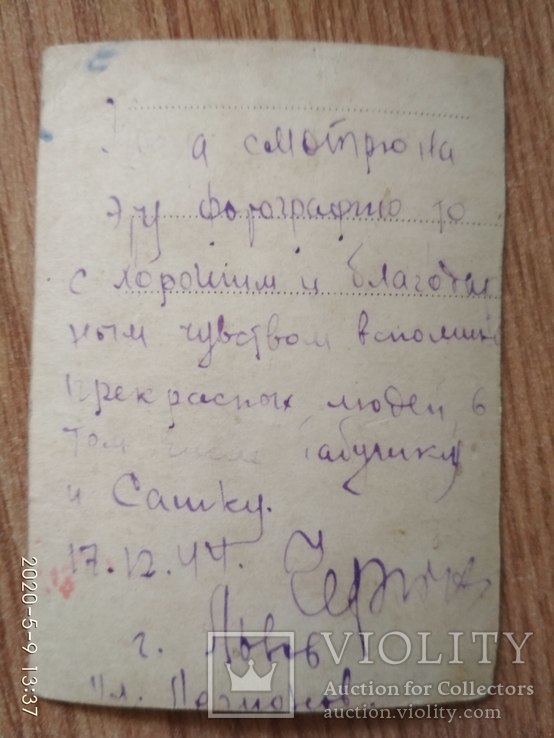 а смотрю на
эту фотографию то
с хорошим и
ным чувством вспомин
прекрасных людей в
том бабушку
и Сашку.
17.12.44.
г. Львов
ул.
2020-5-9 13:37
VIOLITY
Auction for Collectors
auction.violity.com